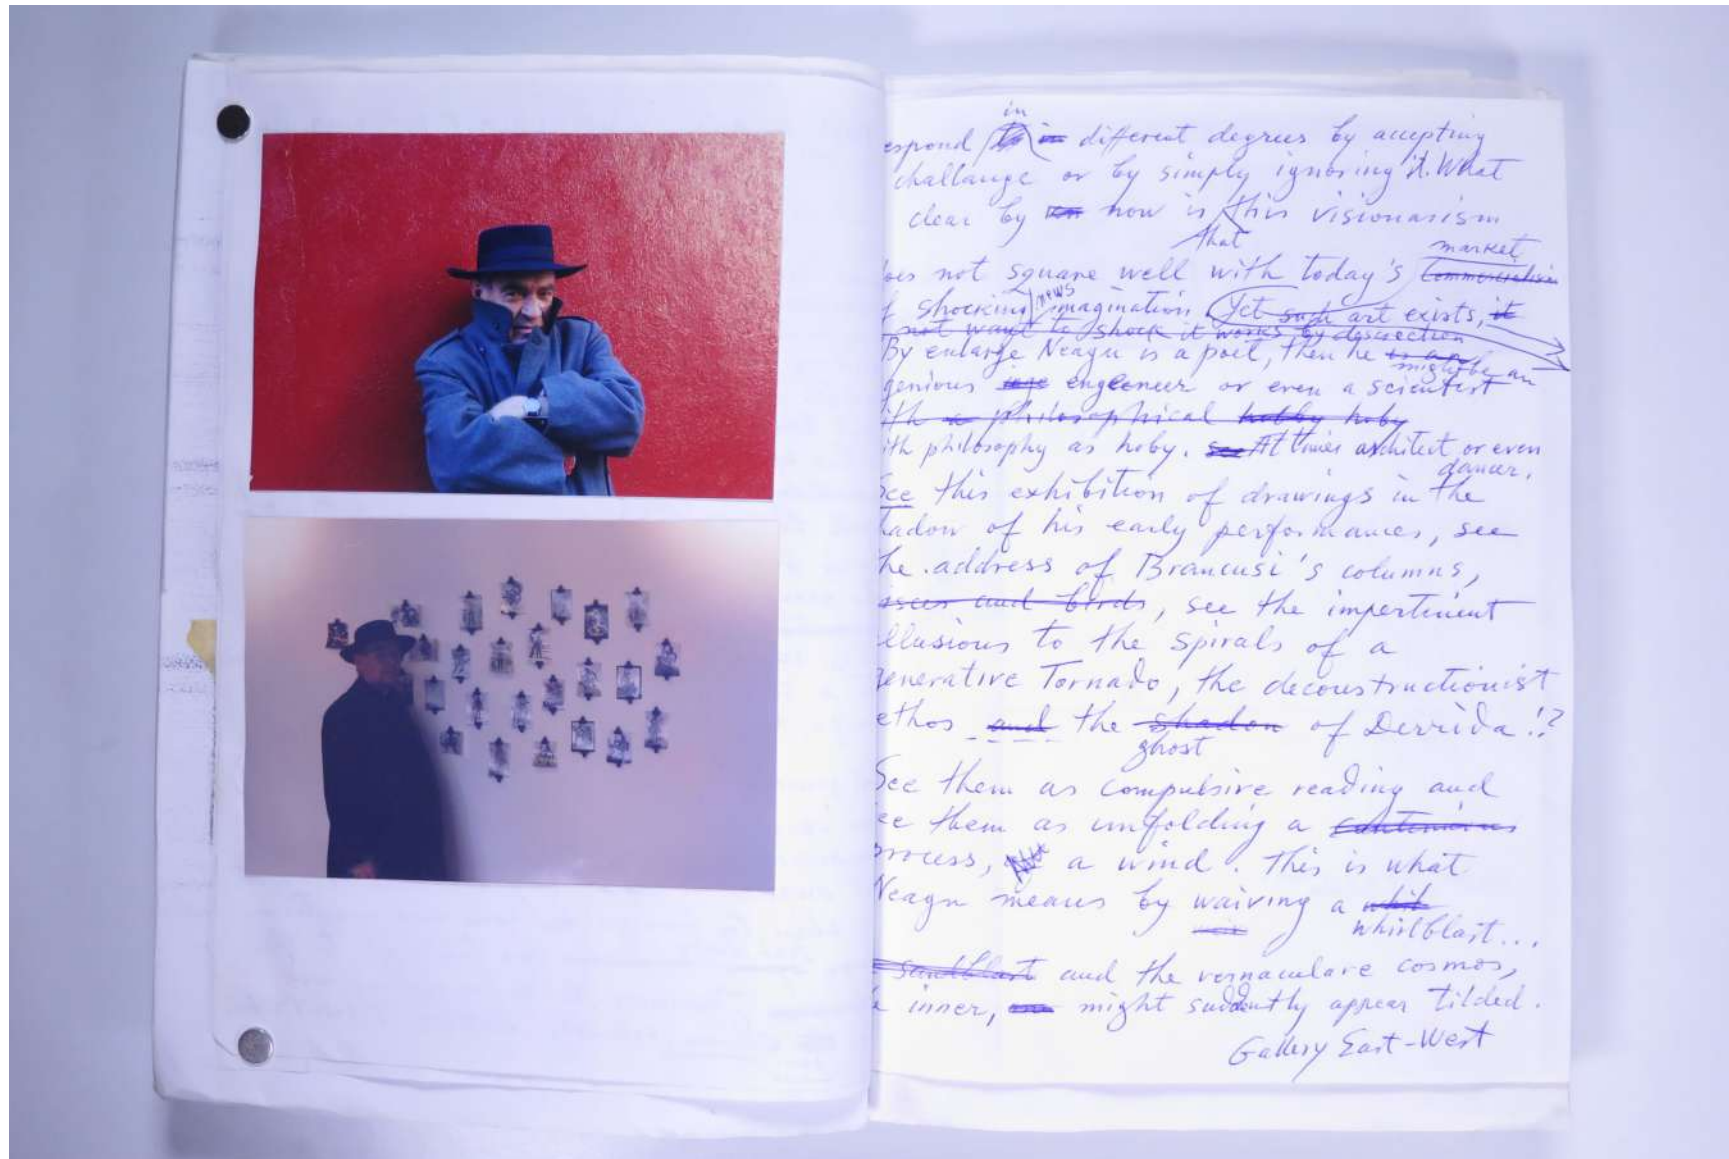 in
espond in different degrees by accepting
challange or by simply ignoring it. What
clear by now is this visionarism
that
market
oes not square well with today's Commercialism
news
f shocking imagination. Yet such art exists, it
not want to shock it works by desirection
By enlarge Neagu is a poet, then he is a
might be an
genious engeneer or even a scientist
ith a philosophical hobby hoby
ith philosophy as hoby. At times architect or even
dancer.
See this exhibition of drawings in the
hadow of his early performances, see
he address of Brancusi's columns,
and birds, see the impertinent
llusions to the spirals of a
generative Tornado, the deconstructionist
ethos and the shadow of Derrida!?
ghost
See them as compulsive reading and
ee them as unfolding a continuous
process, a wind. This is what
Neagu means by waiving a whil
whirlblast...
sandblast and the vernaculare cosmos,
inner, might suddently appear tilded.
Gallery East-West